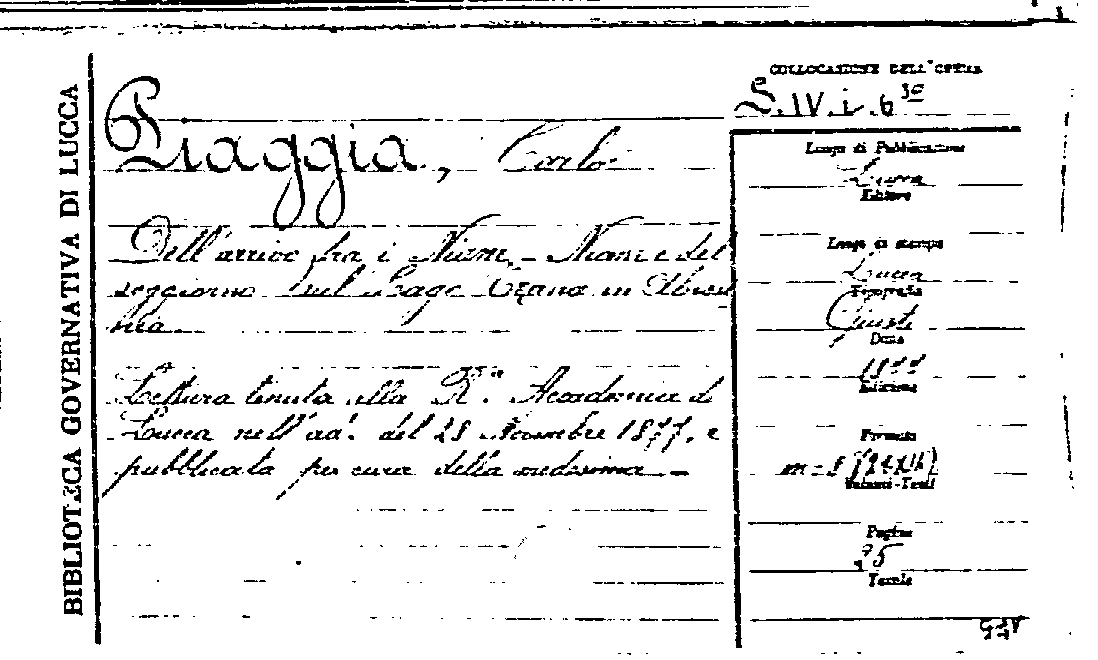 BIBLIOTECA GOVERNATIVA DI LUCCA
COLLOCAZIONE DELL'OPERA
Piaggia, Carlo
Dell'arrivo fra i Niam-Niam e del
soggiorno nel Lago Tzana in Abissi
nia
Lettura tenuta alla R.a Accademia di
Lucca nell'ad. del 28 Novembre 1877, e
pubblicata per cura della medesima
Luogo di Pubblicazione
Lucca
Editore
Luogo di stampa
Lucca
Tipografia
Giusti
Data
1877
Edizione
Formato
Volumi-Tomi
Pagine
Tavole